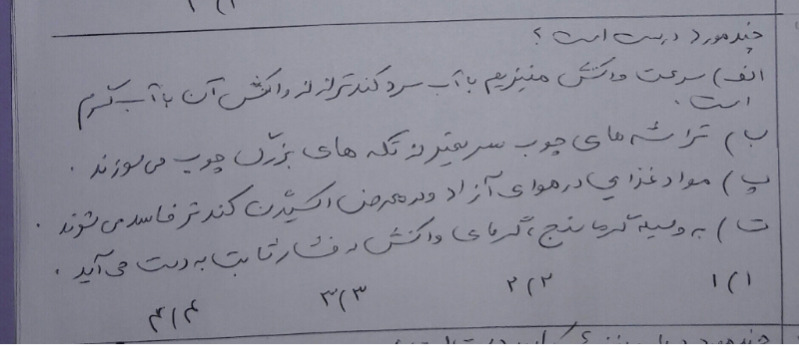 چند مورد درست است؟
الف) سرعت واکنش منیزیم با آب سرد کندتر از واکنش آن با آب گرم
است.
ب) تراشه های چوب سریعتر از تکه های بزرگ چوب می سوزند.
پ) مواد غذایی در هوای آزاد و در معرض اکسیژن کندتر فاسد می شوند.
ت) به وسیله گرماسنج، گرمای واکنش در فشار ثابت به دست می آید.
۱) ۱ ۲) ۲ ۳) ۳ ۴) ۴